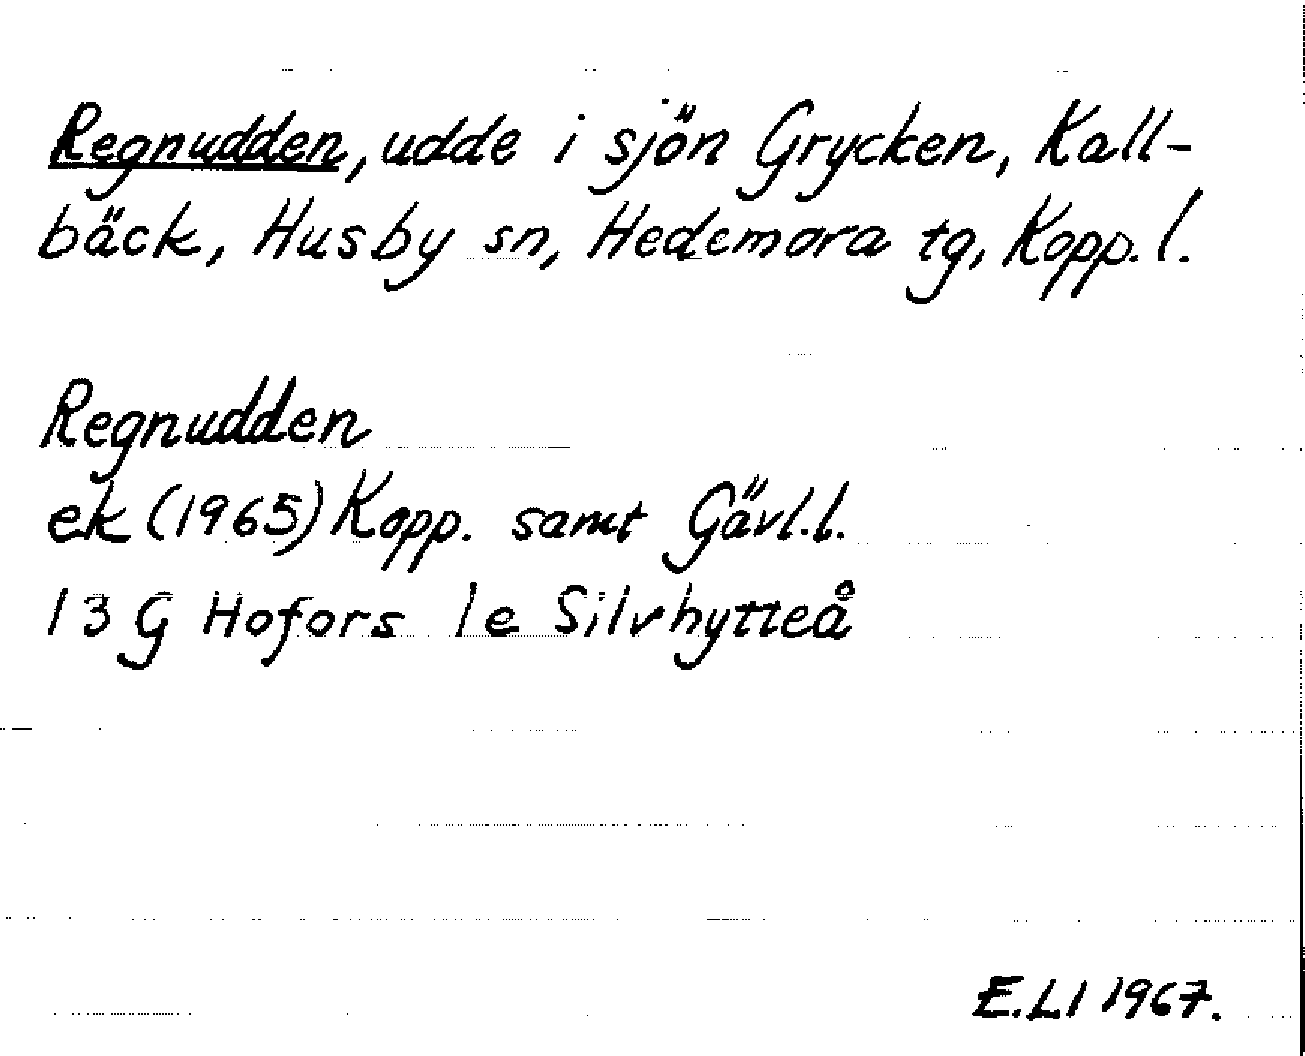 Regnudden, udde i sjön Grycken, Kall-
bäck, Husby sn, Hedemora tg, Kopp. l.
Regnudden
ek (1965) Kopp. samt Gävl.l.
13 G Hofors 1e Silvhytteå
E.LI 1967.